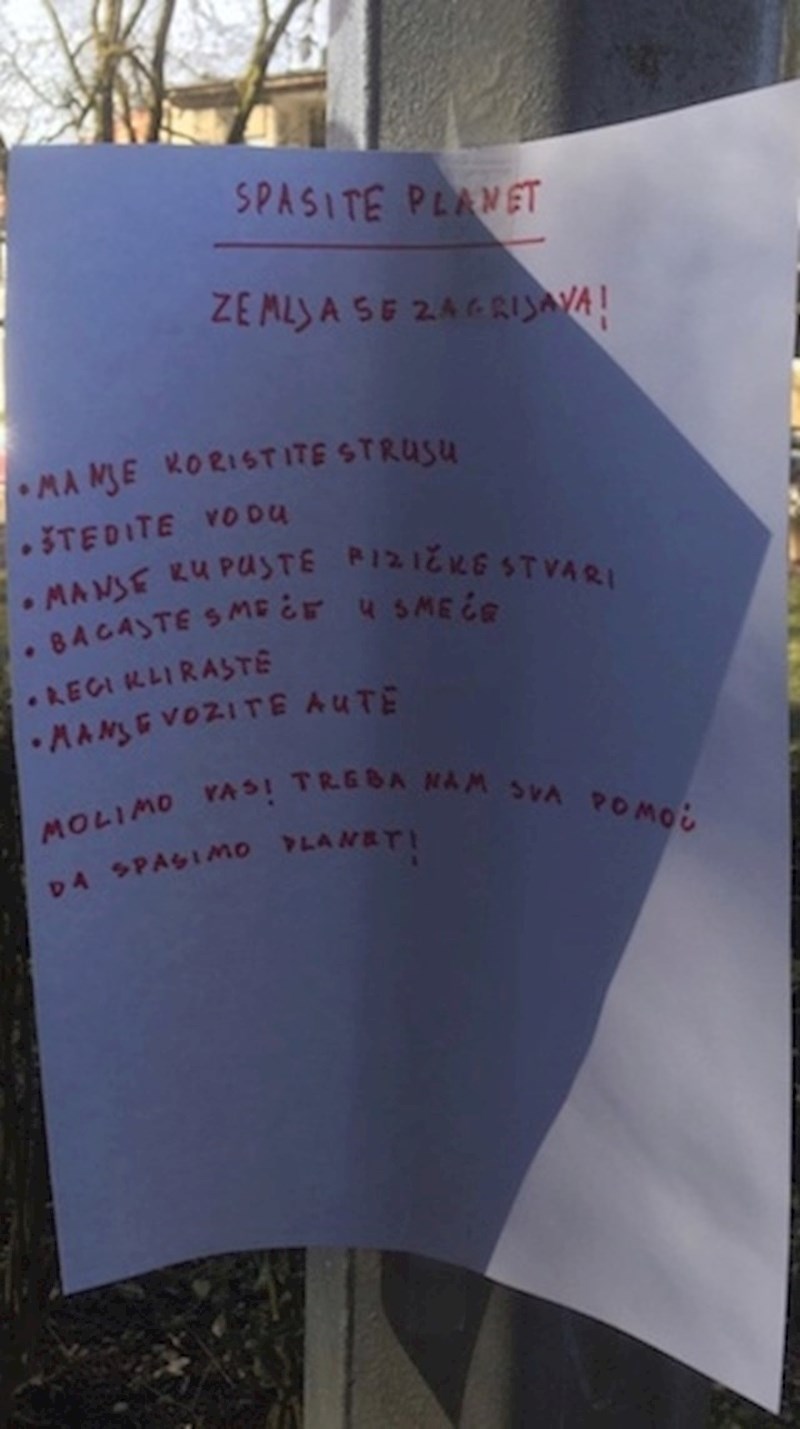 SPASITE PLANET
ZEMLJA SE ZAGRIJAVA!
• MANJE KORISTITE STRUJU
• ŠTEDITE VODU
• MANJE KUPUJTE FIZIČKE STVARI
• BACAJTE SMEĆE U SMEĆE
• RECIKLIRAJTE
• MANJE VOZITE AUTE
MOLIMO VAS! TREBA NAM SVA POMOĆ
DA SPASIMO PLANET!